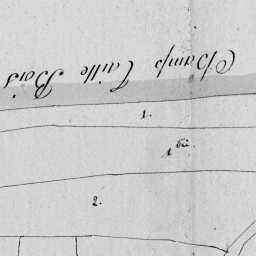 Champ Taille Bois
1.
1 bis.
2.